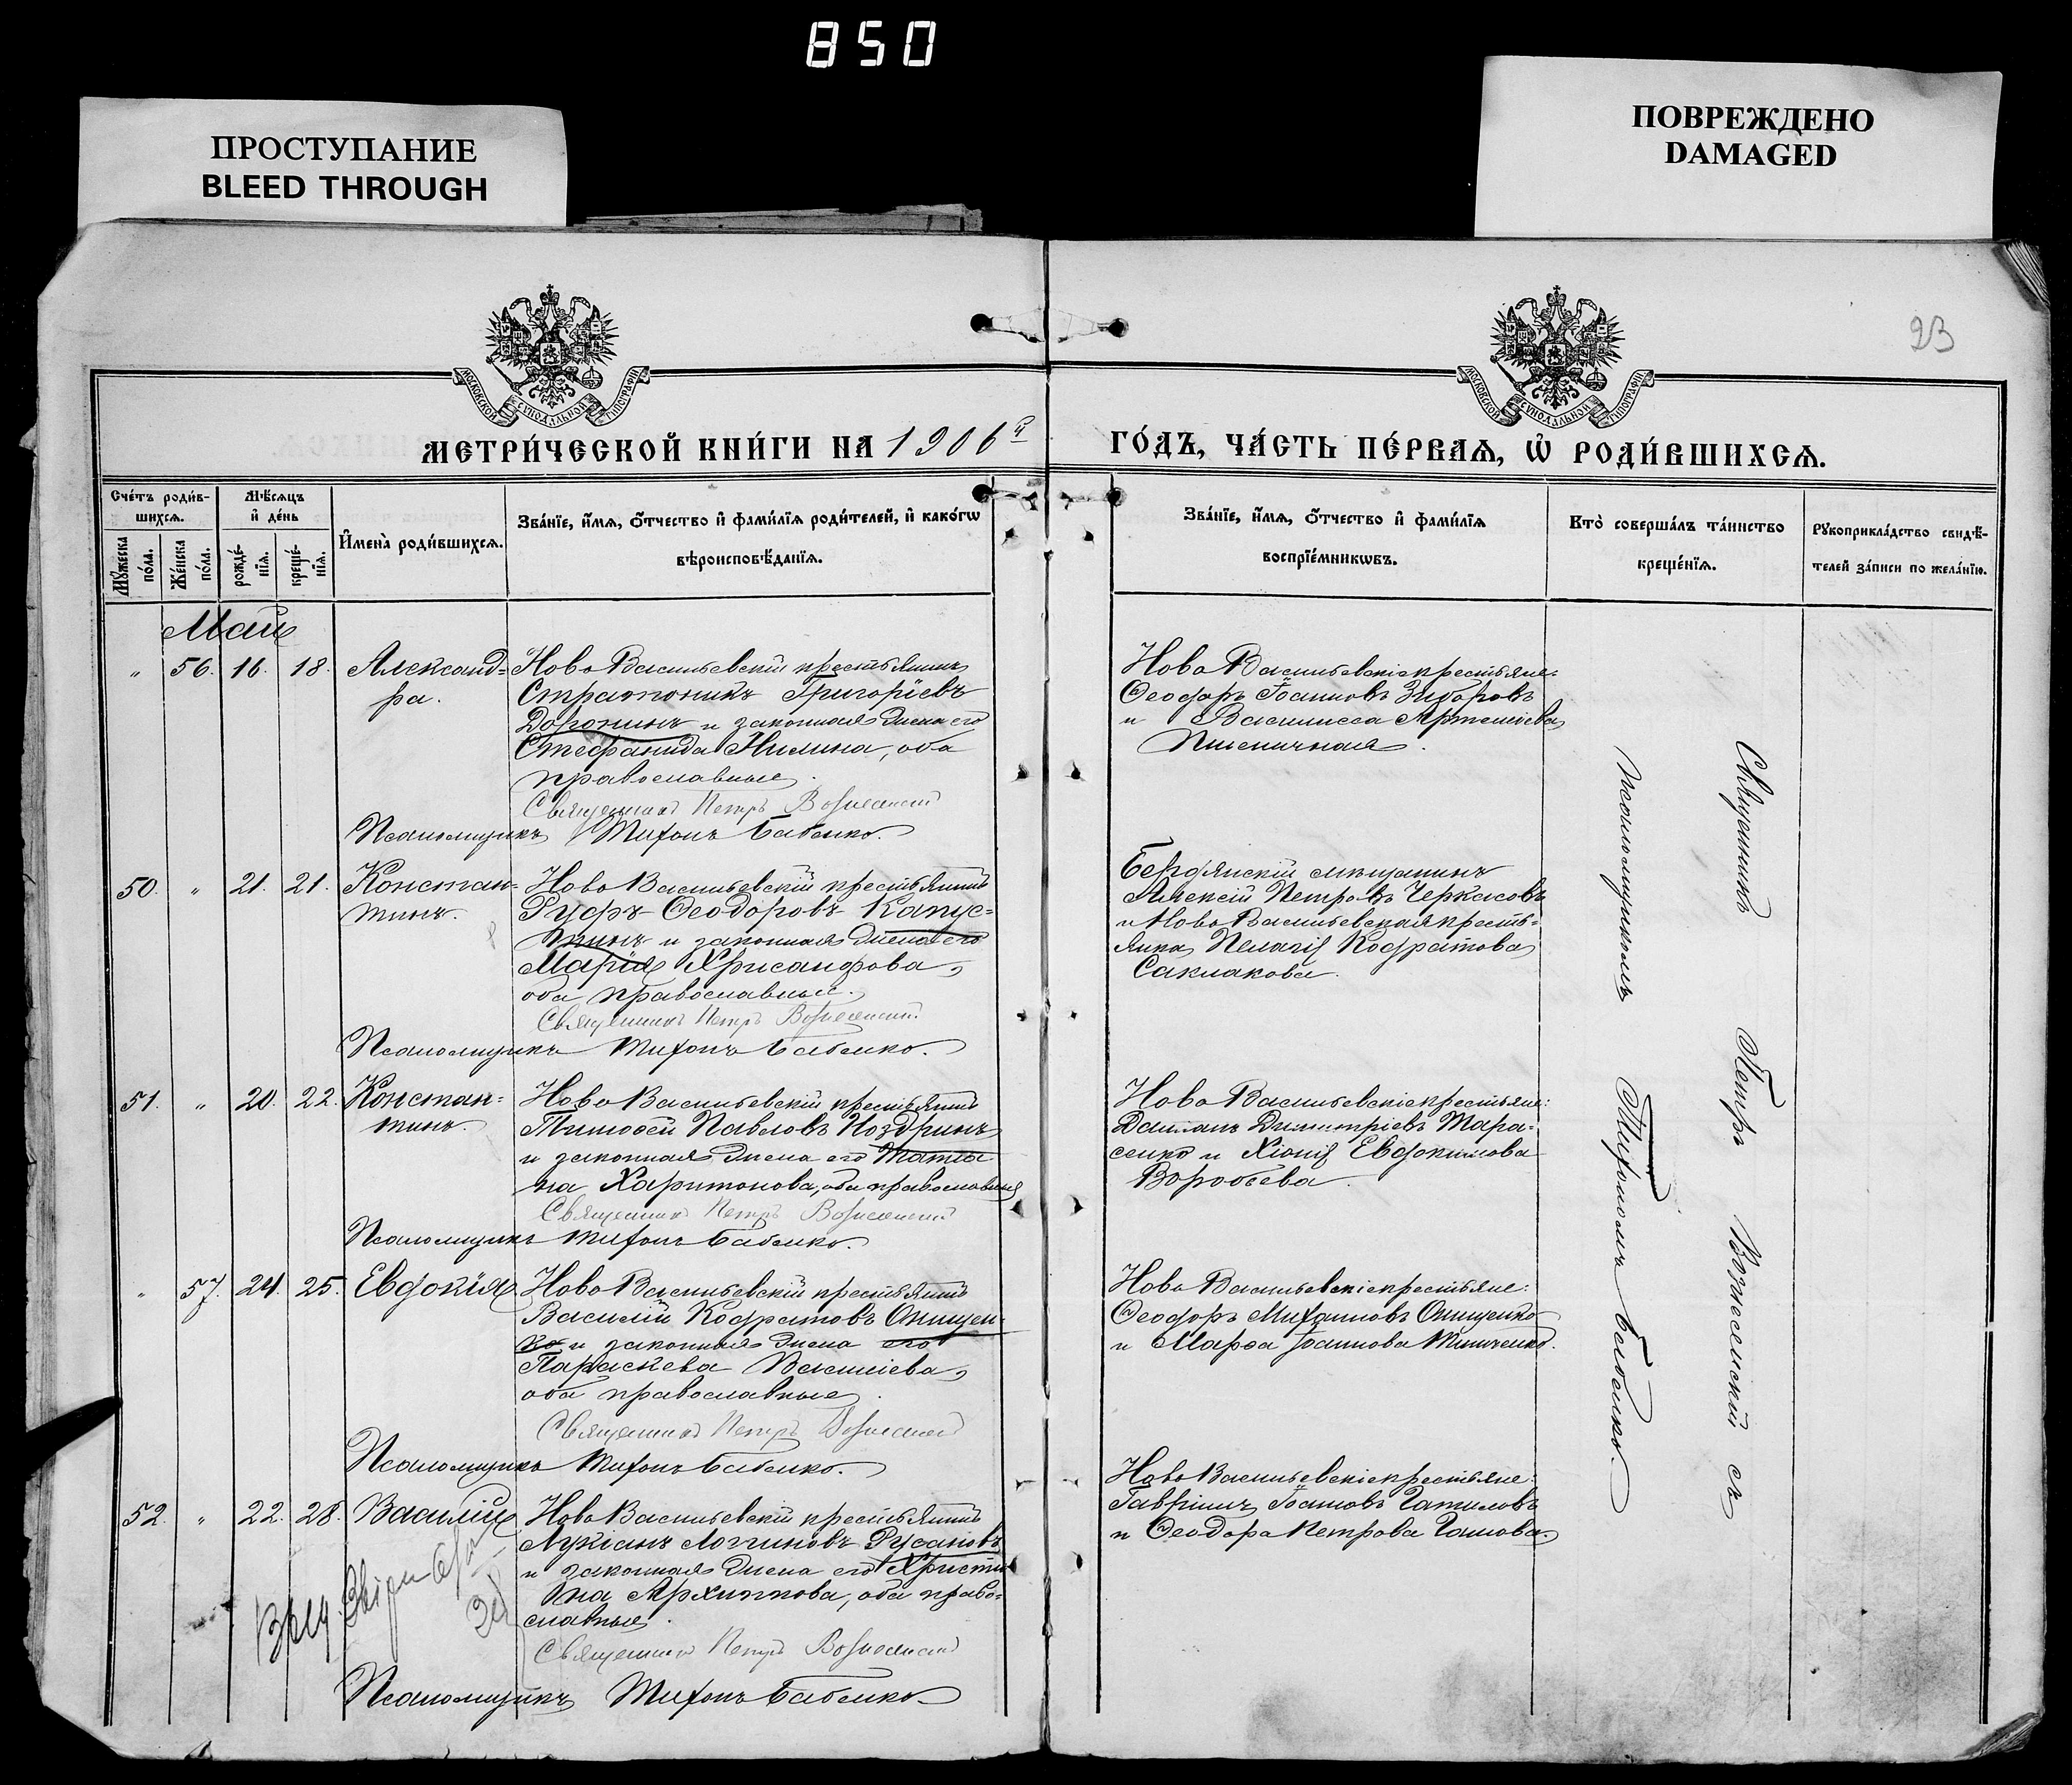 850
ПРОСТУПАНИЕ
BLEED THROUGH
ПОВРЕЖДЕНО
DAMAGED
23
МОСКОВСКОЙ СѴНОДАЛЬНОЙ ТИПОГРАФІИ
МОСКОВСКОЙ СѴНОДАЛЬНОЙ ТИПОГРАФІИ
МЕТРИ́ЧЕСКОЙ КНИ́ГИ НА 1906й
ГО́ДЪ, ЧА́СТЬ ПЕ́РВАѦ, Ѡ҆ РОДИ́ВШИХСѦ.
Сче́тъ роди́в-
шихсѧ.
Мꙋ́жеска
по́ла.
Же́нска
по́ла.
Мѣ́сѧцъ
и҆ де́нь
рожде́-
нїѧ.
креще́-
нїѧ.
И҆мена̀ роди́вшихсѧ.
Зва́нїе, и҆́мѧ, ѻ҆́тчество и҆ фами́лїѧ роди́телей, и҆ како́гѡ
вѣроисповѣ́данїѧ.
Зва́нїе, и҆́мѧ, ѻ҆́тчество и҆ фами́лїѧ
воспрїе́мникѡвъ.
Кто̀ соверша́лъ та́инство
креще́нїѧ.
Рꙋкоприкла́дство свидѣ́-
телей за́писи по жела́нїю.
Май
" 56. 16. 18. Александ=
ра.
Ново Васильевскій крестьянинъ
Стратоникъ Григоріевъ
Доронинъ и законная жена его
Стефанида Нилина, оба
православные.
Священникъ Петръ Вознесенскій
Псаломщикъ Тихонъ Бабенко.
Ново Васильевскіе крестьяне:
Ѳеодоръ Іоанновъ Зиборовъ
и Василисса Артеміева
Пшеничная.
50. " 21. 21. Констан=
тинъ.
Ново Васильевскій крестьянинъ
Руфъ Ѳеодоровъ Капус=
тинъ и законная жена его
Марія Хрисанфова,
оба православные.
Священникъ Петръ Вознесенскій
Псаломщикъ Тихонъ Бабенко.
Бердянскій мѣщанинъ
Алексій Петровъ Черкасовъ
и Ново Васильевская кресть=
янка Пелагія Кодратова
Саклакова.
51. " 20. 22. Констан=
тинъ.
Ново Васильевскій крестьянинъ
Тимоѳей Павловъ Ноздринъ
и законная жена его Татіа
на Харитонова, оба православные
Священникъ Петръ Вознесенскій
Псаломщикъ Тихонъ Бабенко.
Ново Васильевскіе крестьяне:
Даміанъ Димитріевъ Тара=
сенко и Хіонія Евдокимова
Воробьева.
" 57. 24. 25. Евдокія
Ново Васильевскій крестьянинъ
Василій Кодратовъ Онищен=
ко и законная жена его
Параскева Василіева,
оба православные.
Священникъ Петръ Вознесенскій
Псаломщикъ Тихонъ Бабенко.
Ново Васильевскіе крестьяне:
Ѳеодоръ Михаиловъ Онищенко
и Марѳа Іоаннова Тимченко.
52. " 22. 28. Василій
Ново Васильевскій крестьянинъ
Лукіанъ Логгиновъ Русановъ
и законная жена его Христи
на Архиппова, оба право=
славные.
Священникъ Петръ Вознесенскій
Псаломщикъ Тихонъ Бабенко
Ново Васильевскіе крестьяне:
Гавріилъ Іоанновъ Гатиловъ
и Ѳеодора Петрова
Священникъ Петръ Вознесенскій съ
псаломщикомъ Тихономъ Бабенко.